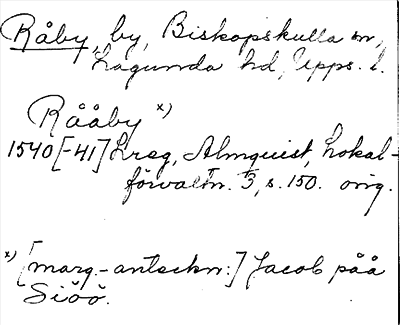 Råby, by, Biskopskulla sn,
Lagunda hd, Upps. l.
Rååby x)
1540[-41] Lräg, Almquist, Lokal-
förvaltn. 3, s. 150. orig.
x) [marg.-anteckn:] Jacob påå
Siöö.